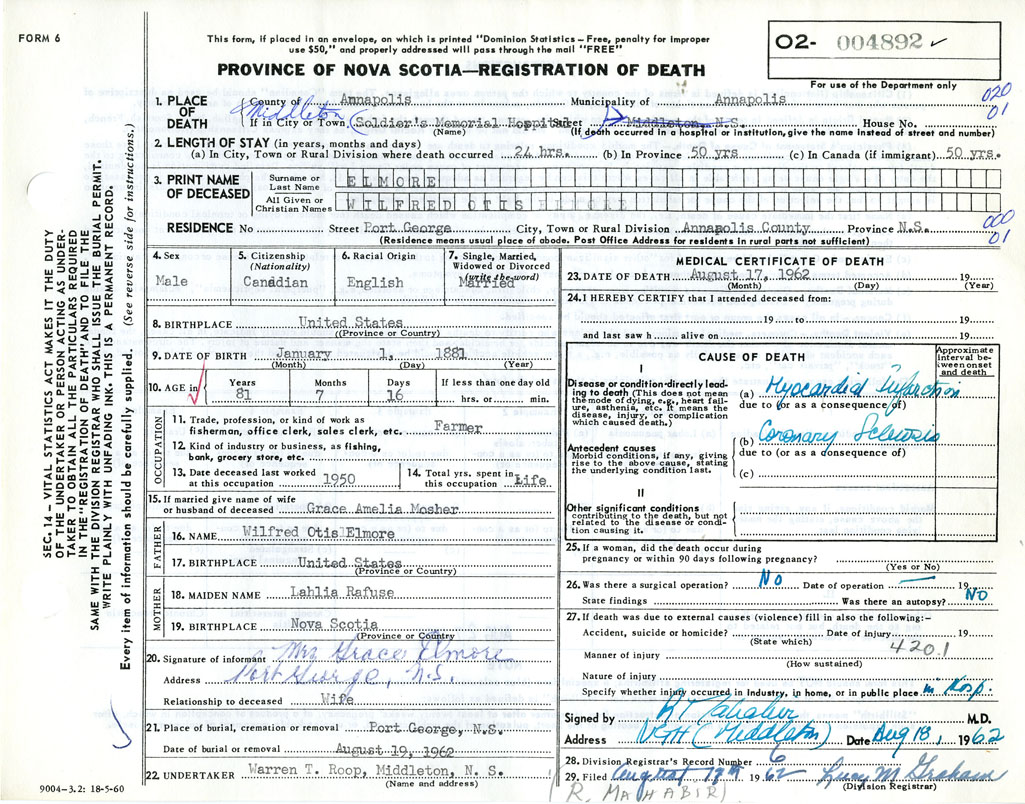 FORM 6
This form, if placed in an envelope, on which is printed "Dominion Statistics – Free, penalty for improper
use $50," and properly addressed will pass through the mail "FREE"
PROVINCE OF NOVA SCOTIA—REGISTRATION OF DEATH
O2- 004892 ✓
For use of the Department only
020
01
1. PLACE OF DEATH
County of Annapolis Municipality of Annapolis
Middleton
If in City or Town (Soldier's Memorial Hospital Street Middleton, N.S. House No.
(Name) (If death occurred in a hospital or institution, give the name instead of street and number)
2. LENGTH OF STAY (in years, months and days)
(a) In City, Town or Rural Division where death occurred 24 hrs. (b) In Province 50 yrs (c) In Canada (if immigrant) 50 yrs.
3. PRINT NAME OF DECEASED
Surname or Last Name ELMORE
All Given or Christian Names WILFRED OTIS ELMORE
000
01
RESIDENCE No Street Port George City, Town or Rural Division Annapolis County Province N.S.
(Residence means usual place of abode. Post Office Address for residents in rural parts not sufficient)
4. Sex
Male
5. Citizenship
(Nationality)
Canadian
6. Racial Origin
English
7. Single, Married,
Widowed or Divorced
(write the word)
Married
8. BIRTHPLACE United States
(Province or Country)
9. DATE OF BIRTH January 1, 1881
(Month) (Day) (Year)
10. AGE in Years Months Days If less than one day old
81 7 16 hrs. or min.
OCCUPATION
11. Trade, profession, or kind of work as
fisherman, office clerk, sales clerk, etc. Farmer
12. Kind of industry or business, as fishing,
bank, grocery store, etc.
13. Date deceased last worked
at this occupation 1950
14. Total yrs. spent in
this occupation Life
15. If married give name of wife
or husband of deceased Grace Amelia Mosher
FATHER
16. NAME Wilfred Otis Elmore
17. BIRTHPLACE United States
(Province or Country)
MOTHER
18. MAIDEN NAME Lahlia Rafuse
19. BIRTHPLACE Nova Scotia
(Province or Country
20. Signature of informant Mrs Grace Elmore
Address Port George, N.S.
Relationship to deceased Wife
21. Place of burial, cremation or removal Port George, N.S.
Date of burial or removal August 19, 1962
22. UNDERTAKER Warren T. Roop, Middleton, N. S.
(Name and address)
9004-3.2: 18-5-60
MEDICAL CERTIFICATE OF DEATH
23. DATE OF DEATH August 17, 1962 19
(Month) (Day) (Year)
24. I HEREBY CERTIFY that I attended deceased from:
19 to 19
and last saw h alive on 19
CAUSE OF DEATH
Approximate
interval be-
tween onset
and death
I
Disease or condition directly lead-
ing to death (This does not mean
the mode of dying, e.g., heart fail-
ure, asthenia, etc. It means the
disease, injury, or complication
which caused death.)
(a) Myocardial Infarction
due to (or as a consequence of)
Antecedent causes
Morbid conditions, if any, giving
rise to the above cause, stating
the underlying condition last.
(b) Coronary Sclerosis
due to (or as a consequence of)
(c)
II
Other significant conditions
contributing to the death, but not
related to the disease or condi-
tion causing it.
25. If a woman, did the death occur during
pregnancy or within 90 days following pregnancy?
(Yes or No)
26. Was there a surgical operation? No Date of operation — 19
State findings Was there an autopsy? No
27. If death was due to external causes (violence) fill in also the following:-
Accident, suicide or homicide? Date of injury 19
(State which) 4201
Manner of injury
(How sustained)
Nature of injury
Specify whether injury occurred in Industry, in home, or in public place in Hosp.
Signed by R Mahabir M.D.
Address (Middleton) Date Aug 18, 1962
28. Division Registrar's Record Number 6
29. Filed August 19th 1962 Lucy M Graham
(Division Registrar)
(R. MAHABIR)
SEC. 14 – VITAL STATISTICS ACT MAKES IT THE DUTY
OF THE UNDERTAKER OR PERSON ACTING AS UNDER-
TAKER TO OBTAIN ALL THE PARTICULARS REQUIRED
IN THE "REGISTRATION OF DEATH" AND TO FILE THE
SAME WITH THE DIVISION REGISTRAR WHO SHALL ISSUE THE BURIAL PERMIT.
WRITE PLAINLY WITH UNFADING INK. THIS IS A PERMANENT RECORD.
Every item of information should be carefully supplied. (See reverse side for instructions.)